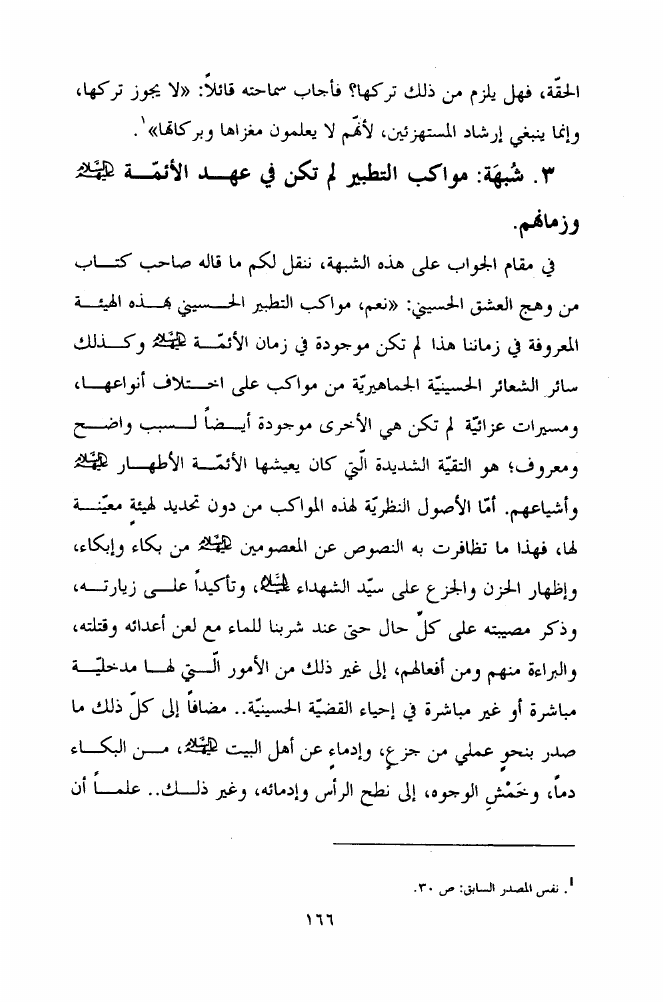 الحقّة، فهل يلزم من ذلك تركها؟ فأجاب سماحته قائلاً: «لا يجوز تركها،
وإنما ينبغي إرشاد المستهزئين، لأنهم لا يعلمون مغزاها وبركاتها»١.
٣. شُبهَة: مواكب التطبير لم تكن في عهد الأئمّة عليهم السلام
وزمانهم.
في مقام الجواب على هذه الشبهة، ننقل لكم ما قاله صاحب كتاب
من وهج العشق الحسيني: «نعم، مواكب التطبير الحسيني بهذه الهيئة
المعروفة في زماننا هذا لم تكن موجودة في زمان الأئمّة عليهم السلام وكذلك
سائر الشعائر الحسينيّة الجماهيريّة من مواكب على اختلاف أنواعها،
ومسيرات عزائيّة لم تكن هي الأخرى موجودة أيضاً لسبب واضح
ومعروف؛ هو التقيّة الشديدة الّتي كان يعيشها الأئمّة الأطهار عليهم السلام
وأشياعهم. أمّا الأصول النظريّة لهذه المواكب من دون تحديد لهيئةٍ معيّنة
لها، فهذا ما تظافرت به النصوص عن المعصومين عليهم السلام من بكاء وإبكاء،
وإظهار الحزن والجزع على سيّد الشهداء عليه السلام، وتأكيداً على زيارته،
وذكر مصيبته على كلِّ حال حتى عند شربنا للماء مع لعن أعدائه وقتلته،
والبراءة منهم ومن أفعالهم، إلى غير ذلك من الأمور الّتي لها مدخليّة
مباشرة أو غير مباشرة في إحياء القضيّة الحسينيّة.. مضافاً إلى كلّ ذلك ما
صدر بنحوٍ عملي من جزعٍ، وإدماءٍ عن أهل البيت عليهم السلام، من البكاء
دماً، وخَمْشِ الوجوه، إلى نطح الرأس وإدمائه، وغير ذلك.. علماً أن
١. نفس المصدر السابق: ص ٣٠.
١٦٦